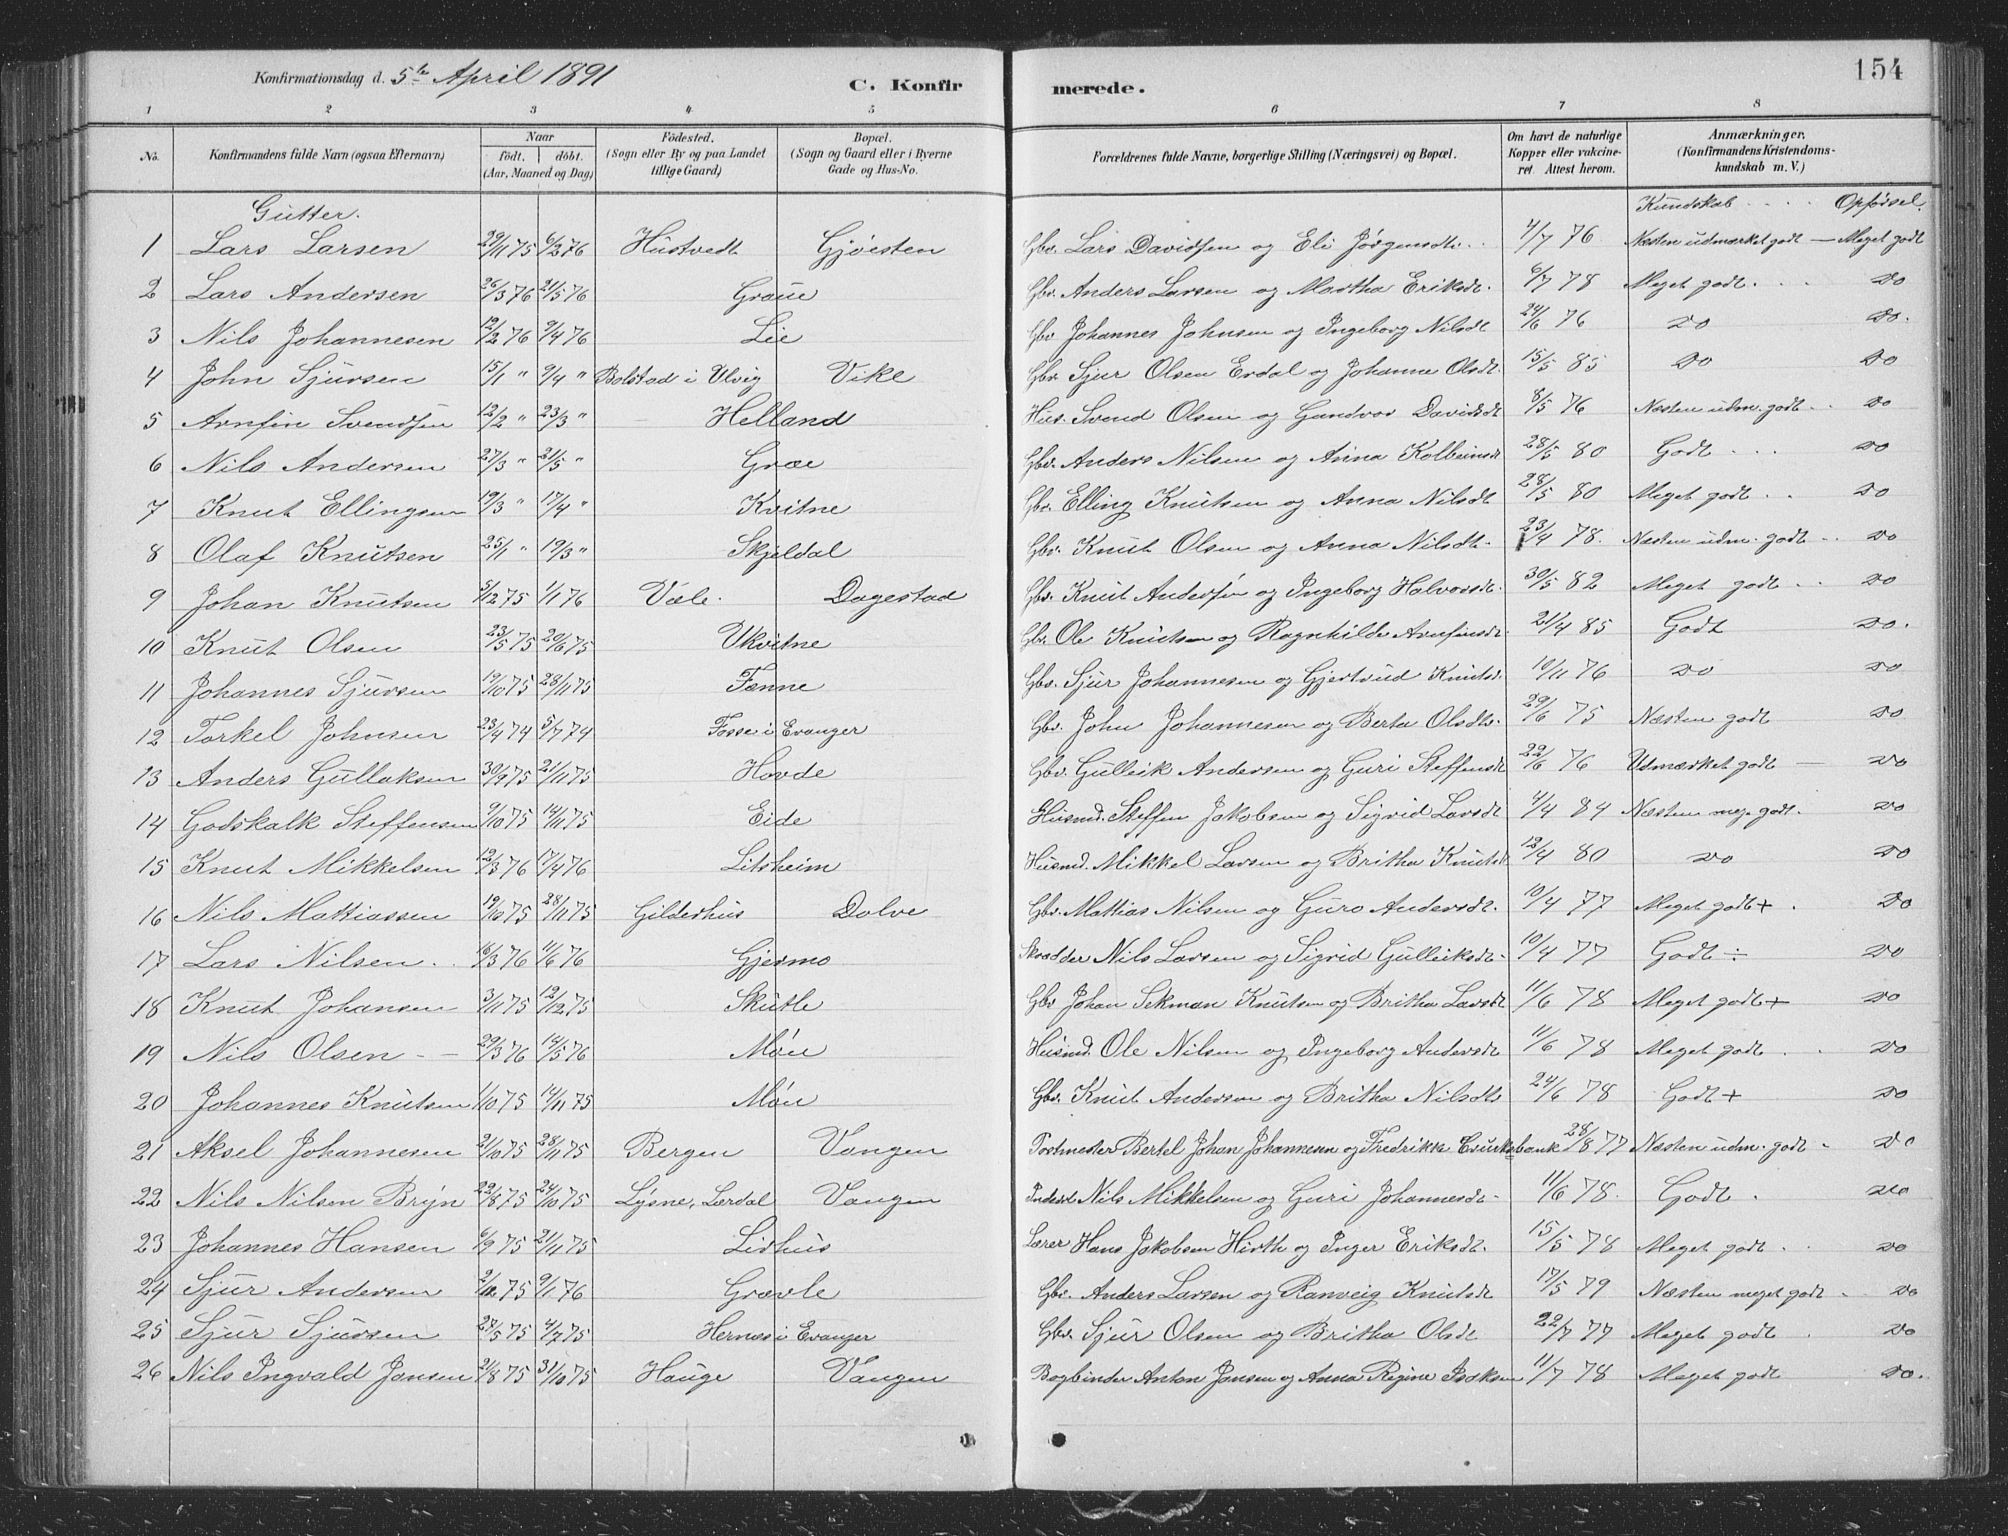 154
Konfirmationsdag d. 5te April 1891 C. Konfirmerede.
1 2 3 4 5 6 7 8
No. Konfirmandens fulde Navn (ogsaa Efternavn) Naar født. døbt. (Aar, Maaned og Dag) Fødested. (Sogn eller By og paa Landet tillige Gaard) Bopæl. (Sogn og Gaard eller i Byerne Gade og Hus-No. Forældrenes fulde Navne, borgerlige Stilling (Næringsvei) og Bopæl. Om havt de naturlige Kopper eller vakcineret. Attest herom. Anmærkninger. (Konfirmandens Kristendomskundskab m. V.)
Gutter. Kundskab Opførsel.
1 Lars Larsen 29/11 75 6/2 76 Hustvedt Gjøesten Gbr. Lars Davidsen og Eli Jørgensdt. 4/7 76 Næsten udmærket godt — Meget godt
2 Lars Andersen 26/3 76 21/5 76 Graue Gbr. Anders Larsen og Martha Eriksdt. 6/7 78 Meget godt do
3 Nils Johannesen 12/2 76 9/4 76 Lie Gbr Johannes Johnsen og Ingeborg Nilsdt 24/6 76 do do.
4 John Sjursen 15/1 " 9/4 " Bolstad i Ulvig Vike Gbr. Sjur Olsen Erdal og Johanna Olsdt. 15/5 85 do do
5 Arnfin Svendsen 12/2 " 23/3 " Helland Hus. Svend Olsen og Gundvor Davidsdt 8/5 76 Næsten udm. godt do
6 Nils Andersen 27/3 " 21/5 " Græe Gbr. Anders Nilsen og Anna Kolbeinsdt 28/5 80 Godt do
7 Knut Ellingsen 19/3 " 17/4 " Kvitne Gbr. Elling Knutsen og Anna Nilsdt 28/5 80 Meget godt do
8 Olaf Knutsen 25/1 " 19/3 " Skjeldal Gbr. Knut Olsen og Anna Nilsdt. 23/4 78. Næsten udm. godt do
9 Johan Knutsen 5/12 75 1/1 76 Væle. Dagestad Gbr. Knut Andersen og Ingeborg Halvorsdt. 30/5 82 Meget godt do
10 Knut Olsen 23/5 75 20/6 75 Ukvitne Gbr. Ole Knutsen og Ragnhilde Arnfinsdt. 21/4 85 Godt do.
11 Johannes Sjursen 19/10 75 28/11 75 Fænne Gbr. Sjur Johannesen og Gjertrud Knutsdt. 10/11 76 do do
12 Torkel Johnsen 23/4 74 5/7 74 Fosse i Evanger Gbr. John Johannesen og Berta Olsdt. 29/6 75 Næsten godt do
13 Anders Gullaksen 30/9 75 21/11 75 Hovde Gbr. Gulleik Andersen og Guri Steffensdt 22/6 76 Udmærket godt — do
14 Godskalk Steffensen 9/10 75 14/11 75 Eide Husmd. Steffen Jakobsen og Sigrid Larsdt 4/4 84 Næsten meg. godt. do
15 Knut Mikkelsen 12/3 76 17/4 76 Litsheim Husmd. Mikkel Larsen og Britha Knutsdt 12/4 80 do do
16 Nils Mattiassen 19/10 75 28/11 75 Gilderhus Dolve Gbr. Mattias Nilsen og Guro Andersdt. 10/4 77 Meget godt + do
17 Lars Nilsen 16/3 76 11/6 76 Gjermo Skrædder Nils Larsen og Sigrid Gulleiksdt. 10/4 77 Godt ÷ do
18 Knut Johansen 3/11 75 12/12 75 Skutle Gbr Johan Sekman Knutsen og Britha Larsdt 11/6 78 Meget godt + do
19 Nils Olsen 29/3 76 14/5 76 Møn Husmd. Ole Nilsen og Ingeborg Andersdt 11/6 78 Meget godt do
20 Johannes Knutsen 1/10 75 14/11 75 Møn Gbr. Knut Andersen og Britha Nilsdt 24/6 78 Godt + do
21 Aksel Johannesen 21/10 75 28/11 75 Bergen Vangen Postmester Bertel Johan Johannesen og Fredrikke 28/8 77 Næsten udm. godt do
22 Nils Nilsen Bryn 22/8 75 24/10 75 Lysne, Lærdal Vangen Nils Mikkelsen og Guri Johannesdt. 11/6 78. Godt do
23 Johannes Hansen 6/9 75 21/11 75 Lidhus Lærer Hans Jakobsen Hirth og Inger Eriksdt. 15/5 78 Meget godt do
24 Sjur Andersen 2/12 75 9/1 76 Grævle Gbr. Anders Larsen og Ranveig Knutsdt 17/5 79 Næsten meget godt do
25 Sjur Sjursen 27/5 75 4/7 75 Hernæs i Evanger Gbr. Sjur Olsen og Britha Olsdt 22/7 77 Meget godt do
26 Nils Ingvald Jansen 21/8 75 31/10 75 Hauge Vangen Bogbinder Anton Jansen og Anna Regine Isaksen 11/7 78 Meget godt do.